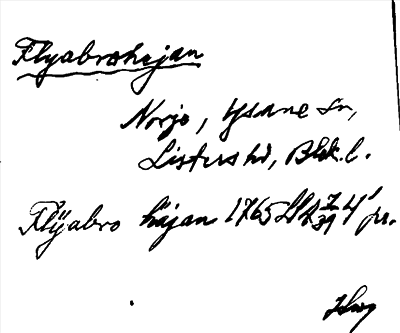 Flyabrohejan
Norje, Ysane sn,
Listers hd, Blek. l.
Flÿabro häjan 1765 LSA 7/39 4¹ pr.